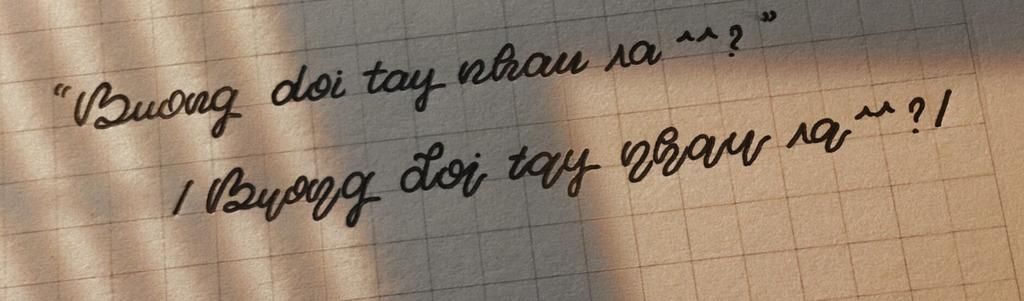 “Buong doi tay nhau ra ^^ ? ”
/ Buong doi tay nhau ra ^^ ? /